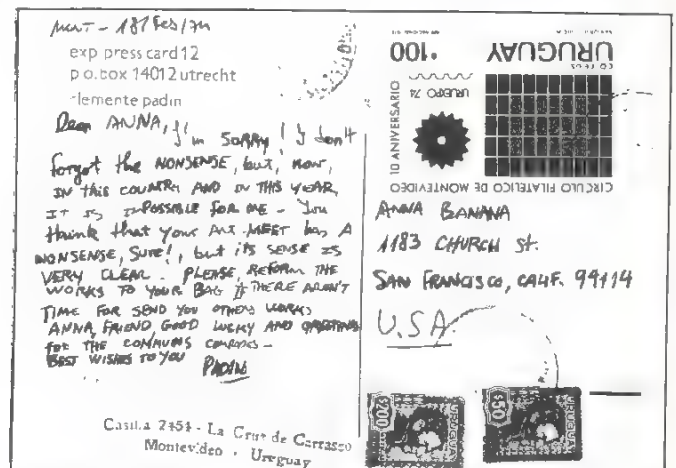 exp press card 12
p.o.box 14012 utrecht
clemente padin
Dear ANNA, I'm SORRY! I don't
forgot the NONSENSE, but, now,
IN this COUNTRY AND IN THIS YEAR,
IT IS IMPOSSIBLE FOR ME - You
think that your Art-MEET has A
NONSENSE, SURE!, but its SENSE IS
VERY CLEAR. PLEASE, REFORM THE
WORKS TO YOUR BAG if THERE AREN'T
TIME FOR SEND YOU OTHERS WORKS
ANNA, FRIEND, GOOD LUCKY AND GREETINGS
for THE COMMUNS COMRADES -
BEST WISHES TO YOU
PADIN
Casilla 2454 - La Cruz de Carrasco
Montevideo - Uruguay
URUGUAY
$100
CORREOS
URUEXPO 74
10 ANIVERSARIO
CIRCULO FILATELICO DE MONTEVIDEO
ANNA BANANA
1183 CHURCH St.
SAN FRANCISCO, CALIF. 94114
U.S.A.
$200
URUGUAY
$50
URUGUAY